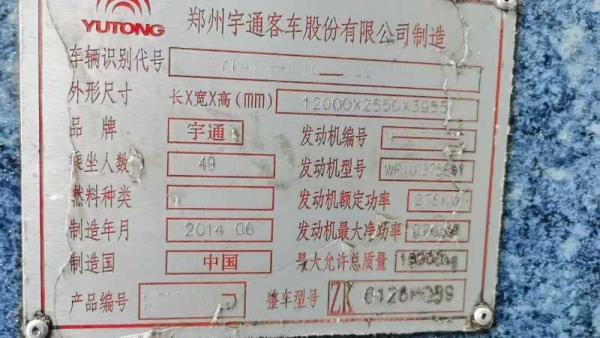 YUTONG 郑州宇通客车股份有限公司制造
车辆识别代号
外形尺寸 长X宽X高(mm) 12000X2550X3955
品牌 宇通 发动机编号
乘坐人数 49 发动机型号
燃料种类 发动机额定功率 276KW
制造年月 2014 06 发动机最大净功率
制造国 中国 最大允许总质量
产品编号 整车型号 ZK 6126HQB9